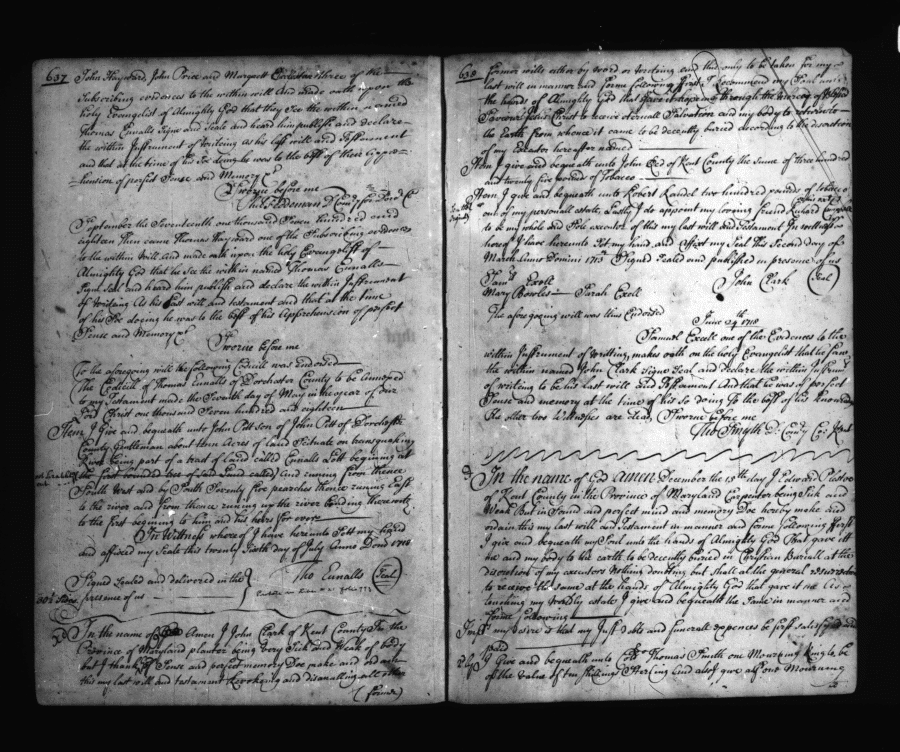 637
John Hayward, John Price and Margarett three of the
Subscribing evidences to the within will and made oath upon the
holy Evangelist of Almighty God that they See the within named
Thomas Eunalls Signe and Seale and heard him publish and declare
the within Instrument of writeing as his last will and Testament
and that at the time of his Soe doing he was to the best of their Appre=
hension of perfect Sense and Memory
Sworne before me
September the Seventeenth one thousand Seven hundred and
eighteen Then came Thomas Hayward one of the Subscribing evidences
to the within Will and made oath upon the holy Evangelist of
Almighty God that he See the within named Thomas Eunalls
Signe Seal and heard him publish and declare the within Instrument
of writeing As his Last will and testament and that at the time
of his Soe doing he was to the best of his Apprehension of perfect
Sense and Memory
Sworne before me
To the aforegoing will the following Codicill was Endorsed
The Codicill of Thomas Eunalls of Dorchester County to be Annexed
to my Testament made the Seventh day of May in the year of our
Lord Christ one thousand Seven hundred and eighteen
Item I Give and bequeath unto John Pitt son of John Pitt of Dorchester
County Gentleman about then Acres of Land Situate on transquaking
River being part of a tract of land called Eunalls Lott begining at
the first bounded tree of land called and runing from thence
South West and by South Seventy five pearches thence runing East
to the river and from thence runing up the river binding therewith
to the first begining to him and his heirs for ever
In Witness whereof I have hereunto Sett my hand
and affixed my Seale this twenty Sixth day of July Anno Dom 1718
Signed Sealed and delivered in the
presence of us
Tho Eunalls
Seal
In the name of God Amen I John Clark of Kent County In the
Province of Maryland planter being very Sick and Weak of body
but I thank God of Sense and perfect memory Doe make and ordaine
this my last will and testament Revokeing and disanulling all other
(former)
638
former wills either by word or writeing and this only to be taken for my
last will in manner and forme following First I recommend my Soul into
the hands of Almighty God that gave it hopeing through the mercy of my blessed
Saviour Jesus Christ to receive eternall Salvation and my body to return to
the Earth from whence it came to be decently buried according to the discretion
of my Executor hereafter named
Item I give and bequeath unto John of Kent County the Sume of three hundred
and twenty five pounds of Tobacco
Item I give and bequeath unto Robert Randel two hundred pounds of tobacco
out of my personall estate, Lastly I do appoint my loveing friend Richard
to be my whole and Sole executor of this my last will and Testament In witness
hereof I have hereunto Set my hand and Affixt my Seal this Second day of
March Anno Domini 1713 Signed Sealed and published in presence of us
Sam Exell
John Clark
Seal
Mary Bowles Sarah Exell
The aforegoing will was thus Endorsed
June 24th 1718
Samuel Excell one of the Evidences to the
within Instrument of Writting, makes oath on the holy Evangelist that he Saw
the within named John Clark Signe Seal and declare the within Instrumt
of writeing to be his last will and Testament And that he was of perfect
Sense and memory at the time of his so doing To the best of his knowledge
the other two Witnesses are dead, Sworne before me
Tho Smyth D. Comry Co: Kent
In the name of God Amen December the day I Edward
of Kent County in the Province of Maryland Carpenter being Sick and
Weak But in Sound and perfect mind and memory Doe hereby make and
ordain this my last will and Testament in manner and forme following First
I give and bequeath my Soul unto the hands of Almighty God that gave itt
me and my body to the earth to be decently buried in Christian Buriall at the
discretion of my executors Nothing doubting but shall at the general resurrection
to receive the same at the hands of Almighty God that gave it me As
touching my Worldly estate I give and bequeath the Same in manner and
forme Following
Inpr my Desire is that my Just debts and funerall expences be first Satisfied and
paid
2ly I Give and bequeath unto Thomas Smith one Mourning Ring to be
of the value of ten shillings Sterling and also I give all our Mourning